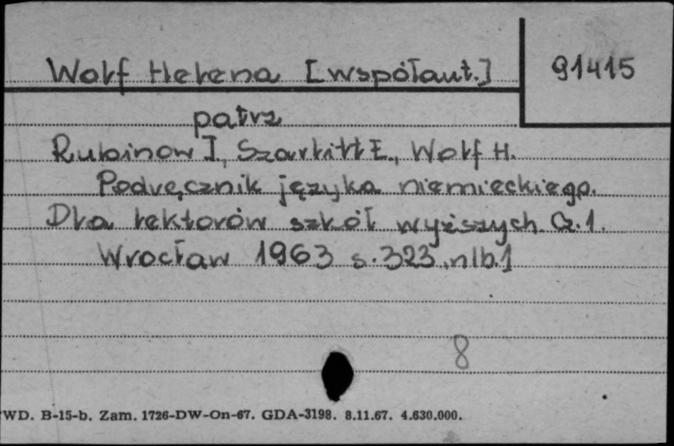 Wolf Helena [współaut.]
91415
patrz
Rubinow I., Szarlitt E., Wolf H.
Podręcznik języka niemieckiego.
Dla lektorów szkół wyższych. Cz. 1.
Wrocław 1963 s. 323, nlb. 1
8
WD. B-15-b. Zam. 1726-DW-On-67. GDA-3198. 8.11.67. 4.630.000.